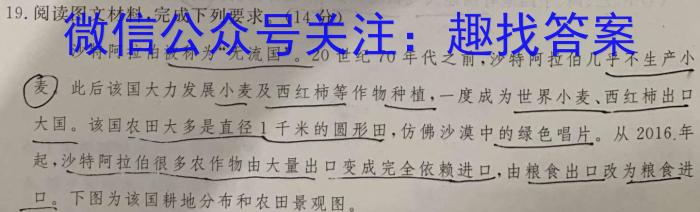 19.阅读图文材料,完成下列要求。(14分)
微信公众号关注：趣找答案
沙特阿拉伯被称为“无流国”。20世纪70年代之前,沙特阿拉伯几乎不生产小
麦。此后该国大力发展小麦及西红柿等作物种植,一度成为世界小麦、西红柿出口
大国。该国农田大多是直径1千米的圆形田,仿佛沙漠中的绿色唱片。从2016年
起,沙特阿拉伯很多农作物由大量出口变成完全依赖进口,由粮食出口改为粮食进
口。下图为该国耕地分布和农田景观图。